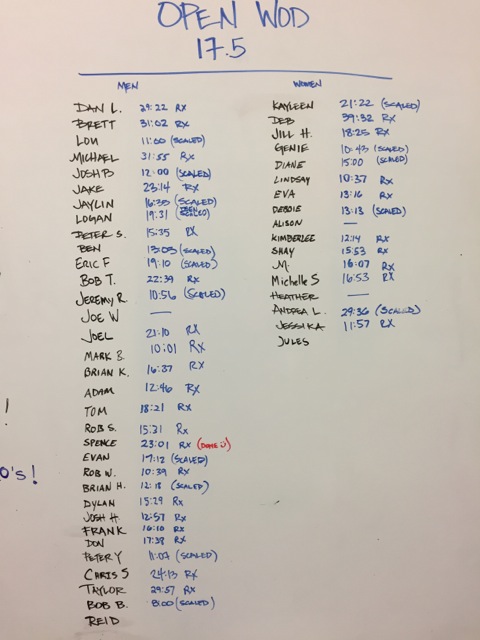 OPEN WOD
17.5
MEN
DAN L. 29:22 RX
BRETT 31:02 RX
LOU 11:00 (SCALED)
MICHAEL 31:55 RX
JOSH B 12:00 (SCALED)
JAKE 23:14 RX
JAYLIN 16:38 (SCALED)
LOGAN 19:31 (SCALED)
PETER S. 15:35 RX
BEN 13:03 (SCALED)
ERIC F 19:10 (SCALED)
BOB T. 22:39 RX
JEREMY R. 10:56 (SCALED)
JOE W —
JOEL 21:10 RX
MARK B. 10:01 RX
BRIAN K. 16:37 RX
ADAM 12:46 RX
TOM 18:21 RX
ROB S. 15:31 RX
SPENCE 23:01 RX (DONE :)
EVAN 17:12 (SCALED)
ROB W. 10:39 RX
BRIAN H. 12:18 (SCALED)
DYLAN 15:29 RX
JOSH H. 12:57 RX
FRANK 16:10 RX
DON 17:38 RX
PETER Y 11:07 (SCALED)
CHRIS S 24:13 RX
TAYLOR 29:57 RX
BOB B. 8:00 (SCALED)
REID
WOMEN
KAYLEEN 21:22 (SCALED)
DEB 39:32 RX
JILL H. 18:25 RX
GENIE 10:43 (SCALED)
DIANE 15:00 (SCALED)
LINDSAY 10:37 RX
EVA 13:16 RX
DEBBIE 13:13 (SCALED)
ALISON —
KIMBERLEE 12:14 RX
SHAY 15:53 RX
M. 16:07 RX
Michelle S 16:53 RX
HEATHER —
ANDREA L. 29:36 (SCALED)
JESSIKA 11:57 RX
JULES
!
O's!